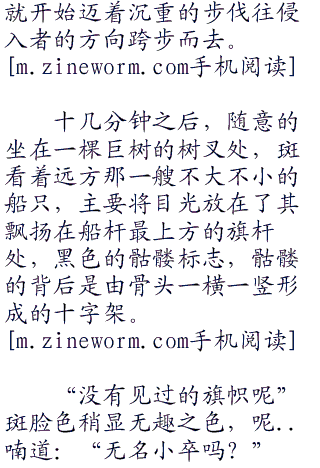 就开始迈着沉重的步伐往侵
入者的方向跨步而去。
[m.zineworm.com手机阅读]
十几分钟之后，随意的
坐在一棵巨树的树叉处，斑
看着远方那一艘不大不小的
船只，主要将目光放在了其
飘扬在船杆最上方的旗杆
处，黑色的骷髅标志，骷髅
的背后是由骨头一横一竖形
成的十字架。
[m.zineworm.com手机阅读]
“没有见过的旗帜呢”
斑脸色稍显无趣之色，呢..
喃道：“无名小卒吗？”